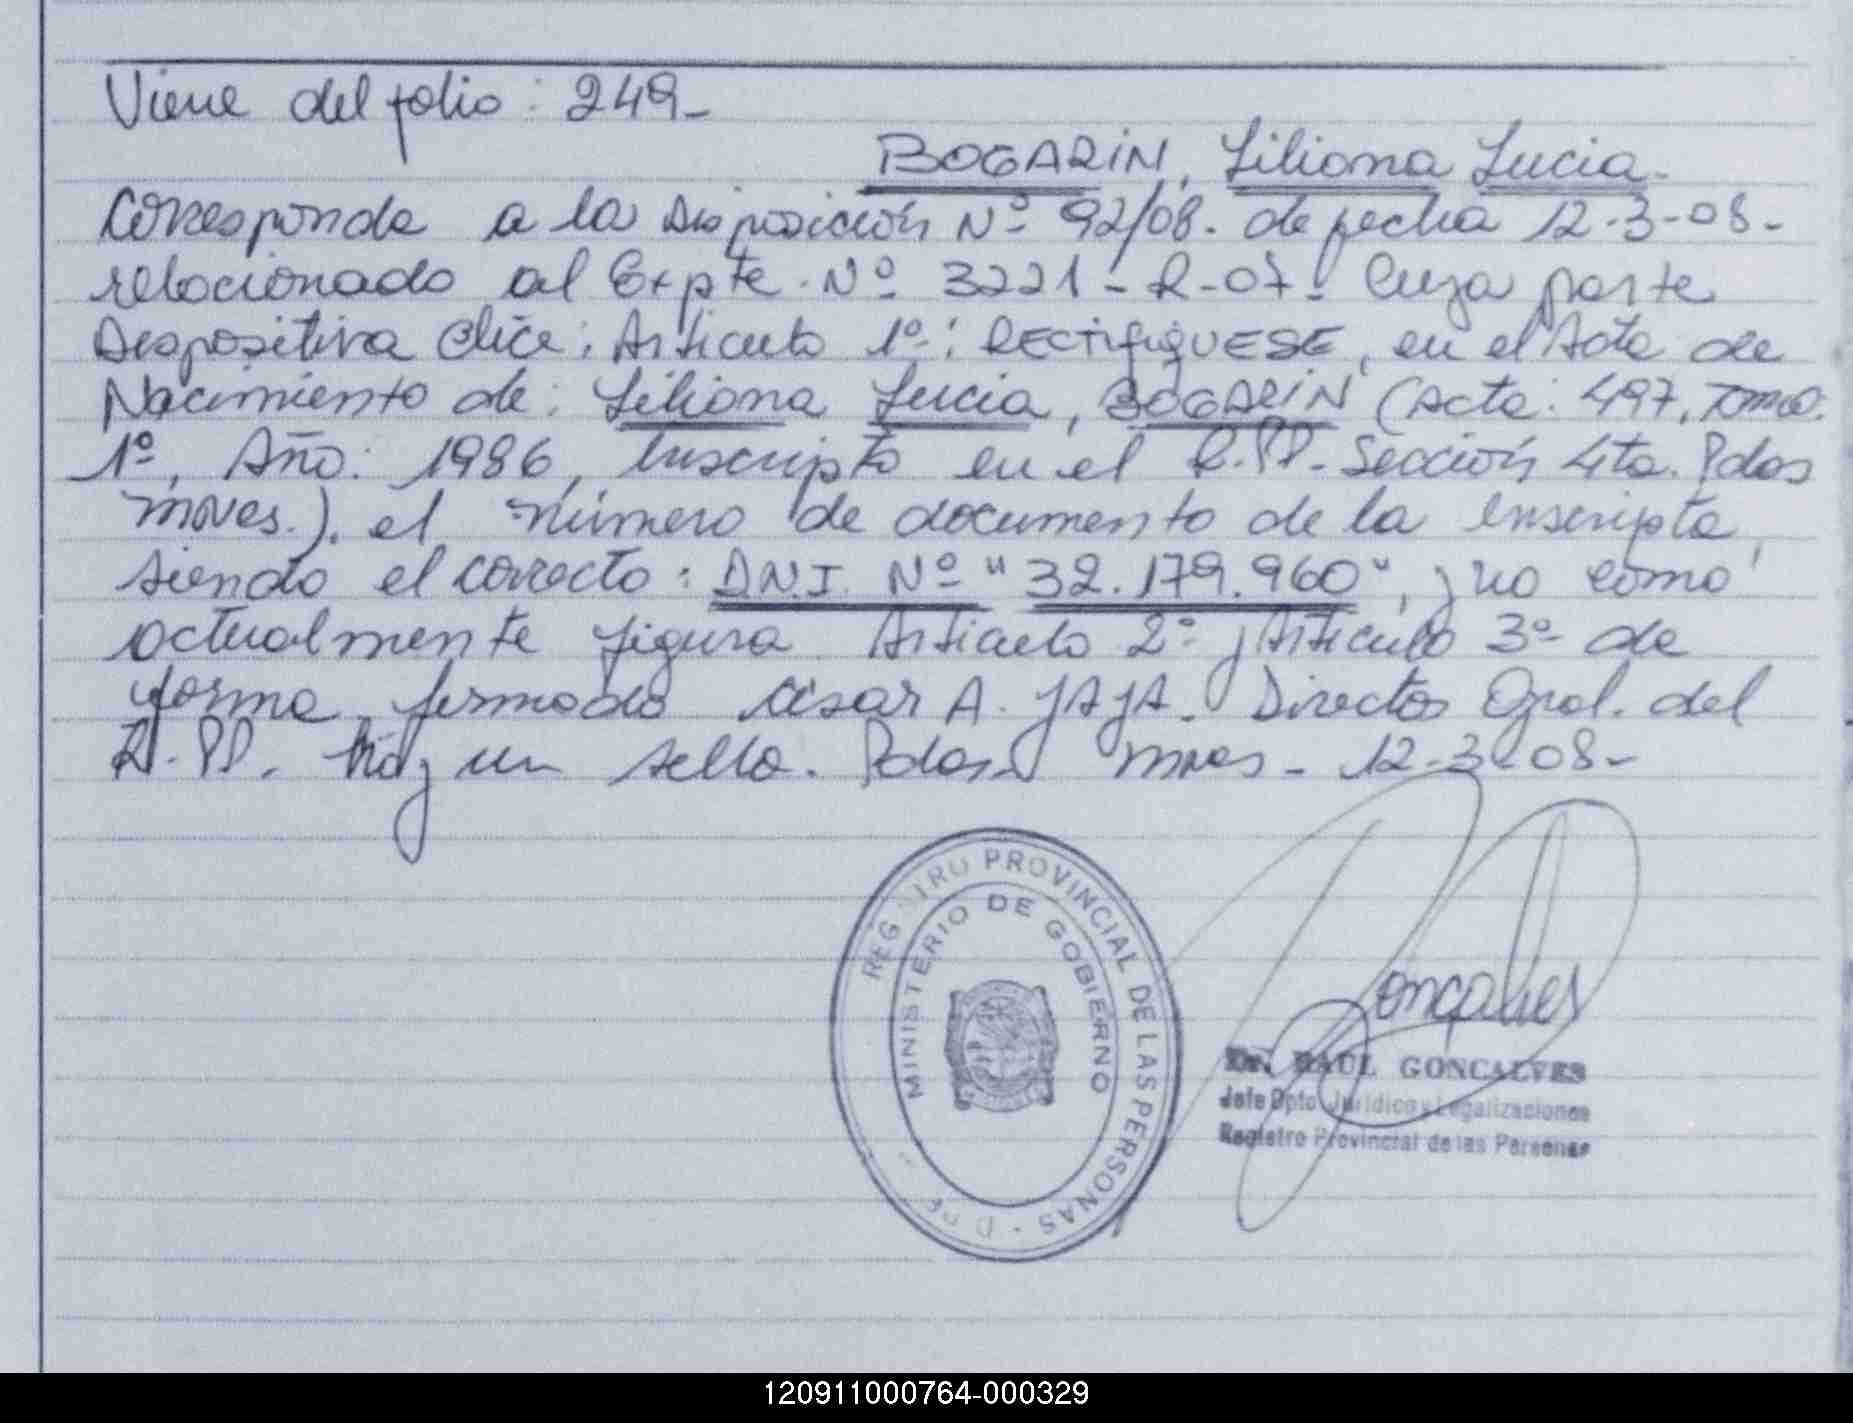 Viene del folio: 249-
BOGARIN, Liliana Lucia-
Corresponde a la Disposición Nº 92/08. de fecha 12-3-08-
relacionado al Expte. Nº 3221-R-07- Cuya parte
Dispositiva dice: Articulo 1º: RECTIFIQUESE, en el Acta de
Nacimiento de: Liliana Lucia, BOGARIN (Acta: 497, Tomo:
1º, Año: 1986, Inscripto en el R.PP. Sección 4ta. Pdas
mnes.). el número de documento de la Inscripta,
siendo el correcto: D.N.I. Nº "32.179.960", y no como
actualmente figura Articulo 2º y Articulo 3º de
forma firmado César A. JAJA. Director Gral. del
R.PP. Hay un sello. Pdas mnes- 12-3-08-
REGISTRO PROVINCIAL DE LAS PERSONAS
MINISTERIO DE GOBIERNO
Goncalves
Dr. RAUL GONCALVES
Jefe Dpto Jurídico y Legalizaciones
Registro Provincial de las Personas
120911000764-000329